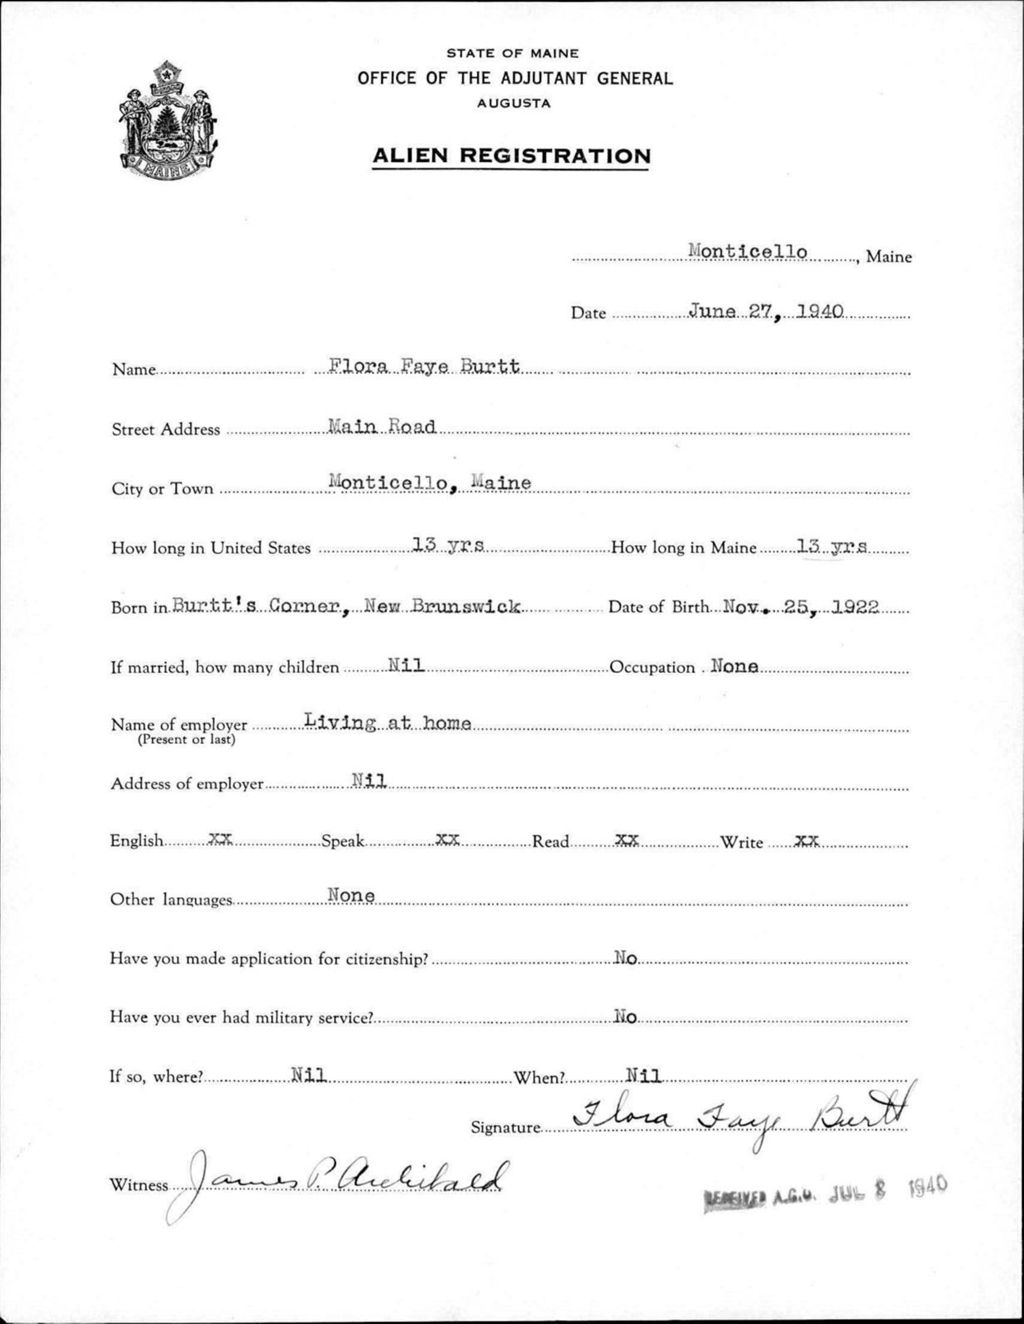 STATE OF MAINE
OFFICE OF THE ADJUTANT GENERAL
AUGUSTA
ALIEN REGISTRATION
MAINE
Monticello, Maine
Date June 27, 1940
Name Flora Faye Burtt
Street Address Main Road
City or Town Monticello, Maine
How long in United States 13 yrs How long in Maine 13 yrs
Born in Burtt's Corner, New Brunswick Date of Birth Nov. 25, 1922
If married, how many children Nil Occupation None
Name of employer Living at home
(Present or last)
Address of employer Nil
English xx Speak xx Read xx Write xx
Other languages None
Have you made application for citizenship? No
Have you ever had military service? No
If so, where? Nil When? Nil
Signature Flora Faye Burtt
Witness James P. Archibald
RECEIVED A.G.O. JUL 8 1940